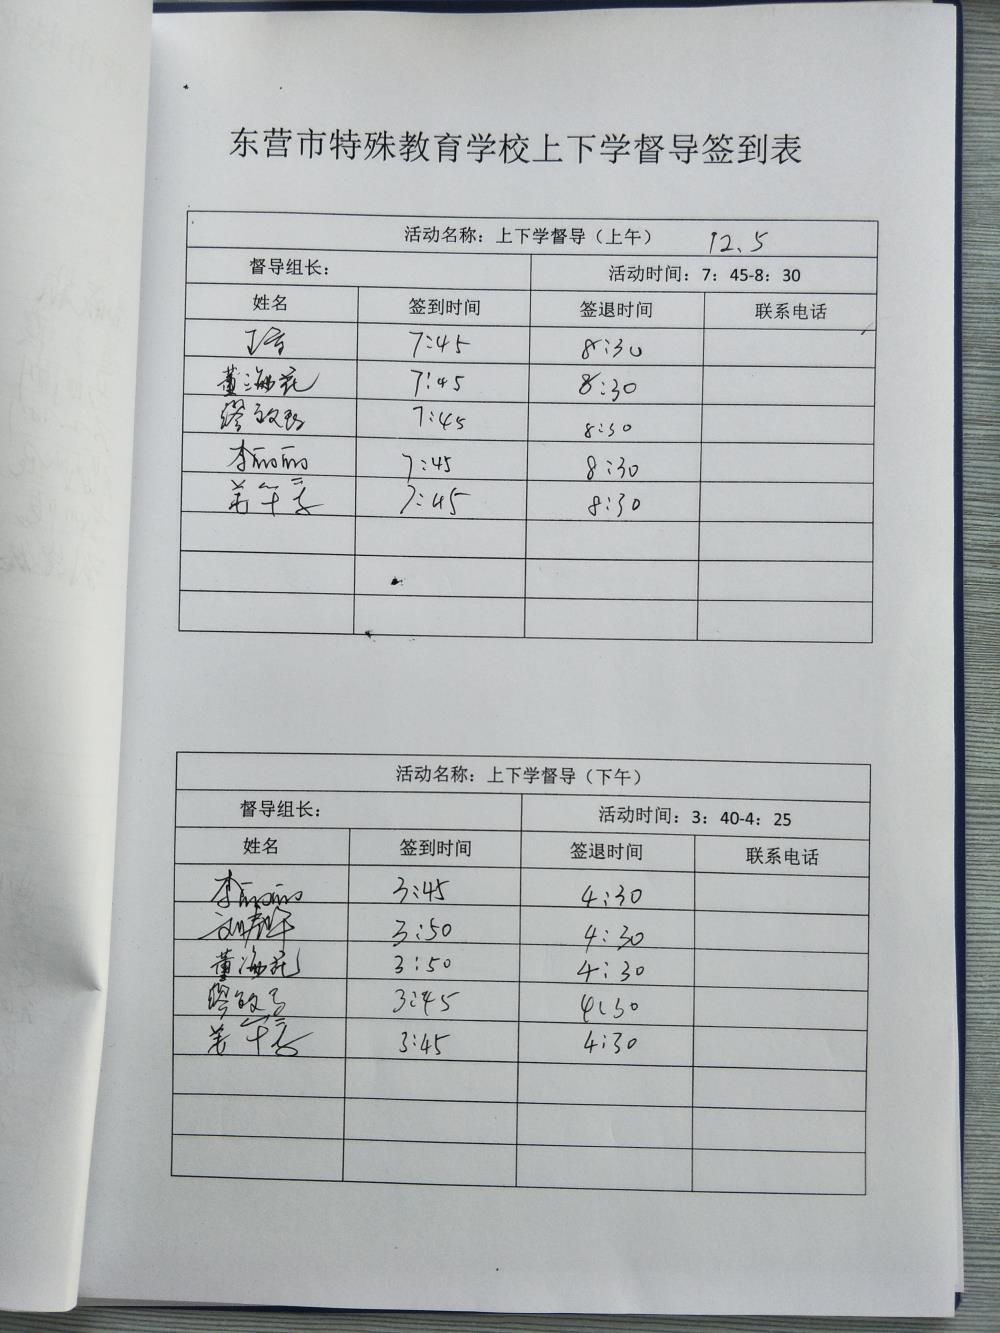 东营市特殊教育学校上下学督导签到表
活动名称：上下学督导（上午） 12.5
督导组长： 活动时间：7：45-8：30
姓名 签到时间 签退时间 联系电话
7:45 8:30
董海花 7:45 8:30
缪 7:45 8:30
李丽丽 7:45 8:30
姜 7:45 8:30
活动名称：上下学督导（下午）
督导组长： 活动时间：3：40-4：25
姓名 签到时间 签退时间 联系电话
李丽丽 3:45 4:30
3:50 4:30
董海花 3:50 4:30
缪 3:45 4:30
姜 3:45 4:30